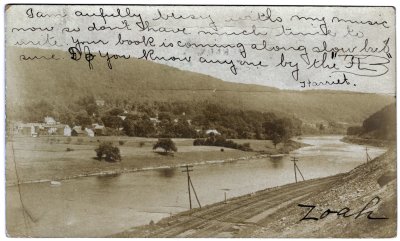 I am awfully busy with my music
now so don't have much time to
write your book is coming along slow but
sure Do you know anyone by the
Harriet.
Zoah